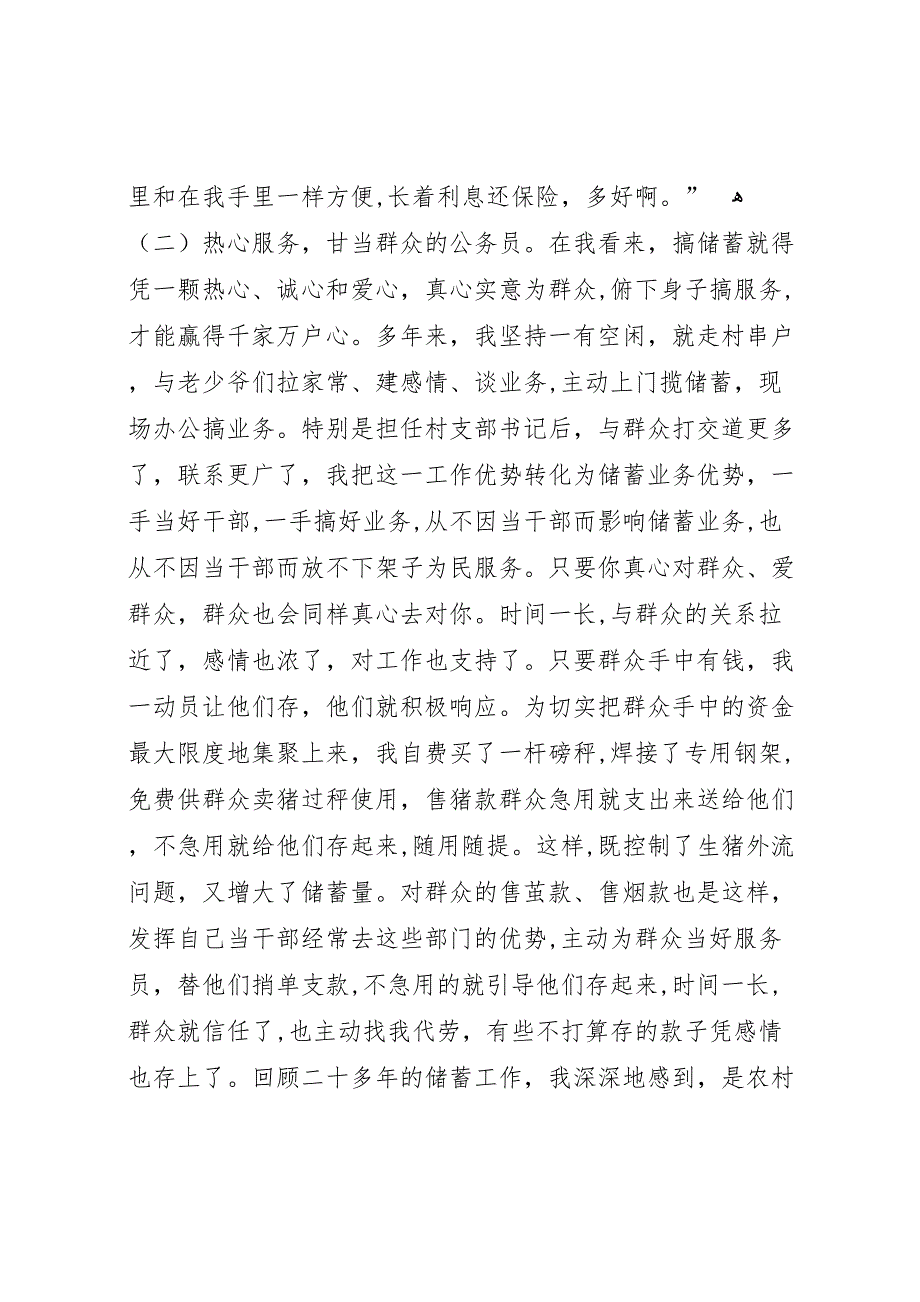 里和在我手里一样方便,长着利息还保险，多好啊。” ﻫ
（二）热心服务，甘当群众的公务员。在我看来，搞储蓄就得
凭一颗热心、诚心和爱心，真心实意为群众,俯下身子搞服务,
才能赢得千家万户心。多年来，我坚持一有空闲，就走村串户
，与老少爷们拉家常、建感情、谈业务,主动上门揽储蓄，现
场办公搞业务。特别是担任村支部书记后，与群众打交道更多
了，联系更广了，我把这一工作优势转化为储蓄业务优势，一
手当好干部,一手搞好业务,从不因当干部而影响储蓄业务,也
从不因当干部而放不下架子为民服务。只要你真心对群众、爱
群众，群众也会同样真心去对你。时间一长,与群众的关系拉
近了，感情也浓了，对工作也支持了。只要群众手中有钱，我
一动员让他们存，他们就积极响应。为切实把群众手中的资金
最大限度地集聚上来，我自费买了一杆磅秤,焊接了专用钢架,
免费供群众卖猪过秤使用，售猪款群众急用就支出来送给他们
，不急用就给他们存起来,随用随提。这样,既控制了生猪外流
问题，又增大了储蓄量。对群众的售茧款、售烟款也是这样，
发挥自己当干部经常去这些部门的优势,主动为群众当好服务
员，替他们捎单支款,不急用的就引导他们存起来,时间一长,
群众就信任了,也主动找我代劳，有些不打算存的款子凭感情
也存上了。回顾二十多年的储蓄工作，我深深地感到，是农村